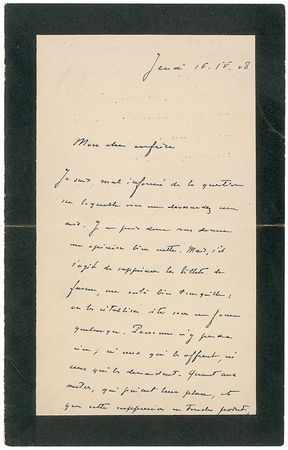 Jeudi 16. IV. 08
Mon cher confrère
Je suis mal informé de la question
sur laquelle vous me demandez mon
avis. Je ne puis donc vous donner
une opinion bien nette. Mais, s'il
s'agit de supprimer les billets de
faveur, me voilà bien tranquille :
on les rétablira vite sous une forme
quelconque. Personne n'y perdra
rien ; ni ceux qui les offrent, ni
ceux qui les demandent. Quant aux
autres, qui paient leur place, et
que cette suppression ne touche point,